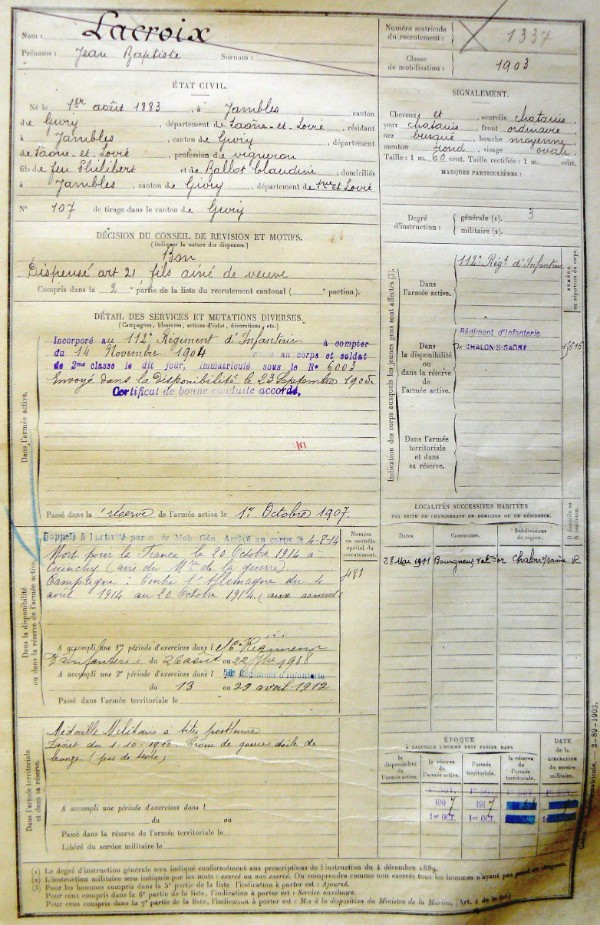 Nom : Lacroix
Prénoms : Jean Baptiste Surnom :
Numéro matricule du recrutement : 1337
Classe de mobilisation : 1903
ÉTAT CIVIL.
Né le 1er août 1883, à Jambles canton
de Givry, département de Saône-et-Loire, résidant
à Jambles, canton de Givry, département
de Saône-et-Loire, profession de vigneron
fils de feu Philibert et de Ballot Claudine, domiciliés
à Jambles, canton de Givry, département de
N° 107 de tirage dans le canton de Givry
SIGNALEMENT.
Cheveux et sourcils chatains
yeux chatains, front ordinaire
nez busqué, bouche moyenne
menton rond, visage ovale
Taille : 1 m. 60 cent. Taille rectifiée : 1 m. cent.
MARQUES PARTICULIÈRES :
Degré d'instruction : générale (1). 3
militaire (2).
DÉCISION DU CONSEIL DE REVISION ET MOTIFS.
(Indiquer la nature des dispenses.)
Bon
Dispensé art 21 fils ainé de veuve
Compris dans la 2 partie de la liste du recrutement cantonal ( portion).
DÉTAIL DES SERVICES ET MUTATIONS DIVERSES.
(Campagnes, blessures, actions d'éclat, décorations, etc.)
Dans l'armée active.
Incorporé au 112e Régiment d'Infanterie à compter
du 14 Novembre 1904 au corps et soldat
de 2me classe le dit jour, immatriculé sous le N° 6003
Envoyé dans la disponibilité le 23 Septembre 1905
Certificat de bonne conduite accordé.
Passé dans la réserve de l'armée active le 1er Octobre 1907.
Indication des corps auxquels les jeunes gens sont affectés (3).
NUMÉRO au répertoire du corps.
Dans l'armée active.
112e Régt d'Infanterie
Dans la disponibilité ou dans la réserve de l'armée active.
Régiment d'Infanterie
De CHALON-S-SAÔNE
Dans l'armée territoriale et dans sa réserve.
Dans la disponibilité ou dans la réserve de l'armée active.
Rappelé à l'activité par de Mob. Gén. Arrivé au corps le 4-8-14
Mort pour la France le 20 Octobre 1914 à
Cuinchy (avis du Mre de la guerre)
Campagne : Contre l'Allemagne du 4
août 1914 au 20 Octobre 1914 (aux armées)
Numéro au contrôle spécial du recrutement.
A accompli une 1re période d'exercices dans l Régiment
d'infanterie du 26 août au 1908
A accompli une 2e période d'exercices dans l Régiment d'Infanterie
du 13 au 29 avril 1912
Passé dans l'armée territoriale le
LOCALITÉS SUCCESSIVES HABITÉES
PAR SUITE DE CHANGEMENTS DE DOMICILE OU DE RÉSIDENCE.
Dates. Communes. Subdivisions de région. D domicile ou R résidence.
28 Mai 1911 Bourgneuf Val d'Or Chalon s/Saône R
Dans l'armée territoriale et dans sa réserve.
Médaille Militaire à titre posthume
A accompli une période d'exercices dans l
du au
Passé dans la réserve de l'armée territoriale le
Libéré du service militaire le
ÉPOQUE
À LAQUELLE L'HOMME DOIT PASSER DANS
DATE de la LIBÉRATION du service militaire.
la disponibilité de l'armée active.
la réserve de l'armée active.
l'armée territoriale.
la réserve de l'armée territoriale.
1907 1917
1er OCT. 1er OCT.
(1) Le degré d'instruction générale sera indiqué conformément aux prescriptions de l'instruction du 4 décembre 1889.
(2) L'instruction militaire sera indiquée par les mots : exercé ou non exercé. On comprendra comme non exercés tous les hommes n'ayant pas passé
(3) Pour les hommes compris dans la 5e partie de la liste l'indication à porter est : Ajourné.
Pour ceux compris dans la 6e partie de la liste, l'indication à porter est : Service auxiliaire.
Pour ceux compris dans la 7e partie de la liste, l'indication à porter est : Mis à la disposition du Ministre de la Marine,